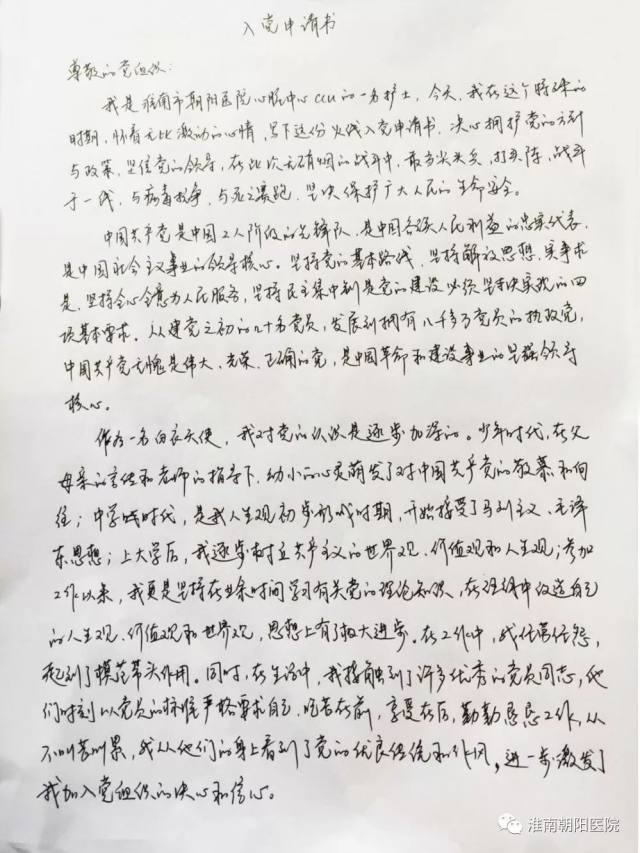 入党申请书
尊敬的党组织：
我是淮南市朝阳医院心脏中心ccu的一名护士，今天，我在这个特殊的
时期，怀着无比激动的心情，写下这份火线入党申请书，决心拥护党的方针
与政策，坚信党的领导，在此次无硝烟的战斗中，敢当尖兵，打头阵，战斗
于一线，与病毒抗争，与死亡赛跑，坚决保护广大人民的生命安全。
中国共产党是中国工人阶级的先锋队，是中国各族人民利益的忠实代表，
是中国社会主义事业的领导核心。坚持党的基本路线，坚持解放思想，实事求
是，坚持全心全意为人民服务，坚持民主集中制是党的建设必须坚决实现的四
项基本要求。从建党之初的几十名党员，发展到拥有八千多万党员的执政党，
中国共产党无愧是伟大、光荣、正确的党，是中国革命和建设事业的坚强领导
核心。
作为一名白衣天使，我对党的认识是逐步加深的。少年时代，在父
母亲的言传和老师的指导下，幼小的心灵萌发了对中国共产党的敬慕和向
往；中学时代，是我人生观初步形成时期，开始接受了马列主义、毛泽
东思想；上大学后，我逐步树立共产主义的世界观、价值观和人生观；参加
工作以来，我更是坚持在业余时间学习有关党的理论知识，在理绩中改造自己
的人生观、价值观和世界观，思想上有了极大进步。在工作中，我任劳任怨，
起到了模范带头作用。同时，在生活中，我接触到了许多优秀的党员同志，他
们时刻以党员的标准严格要求自己，吃苦在前，享受在后，勤勤恳恳工作，从
不叫苦叫累，我从他们的身上看到了党的优良传统和作风，进一步激发了
我加入党组织的决心和信心。
淮南朝阳医院